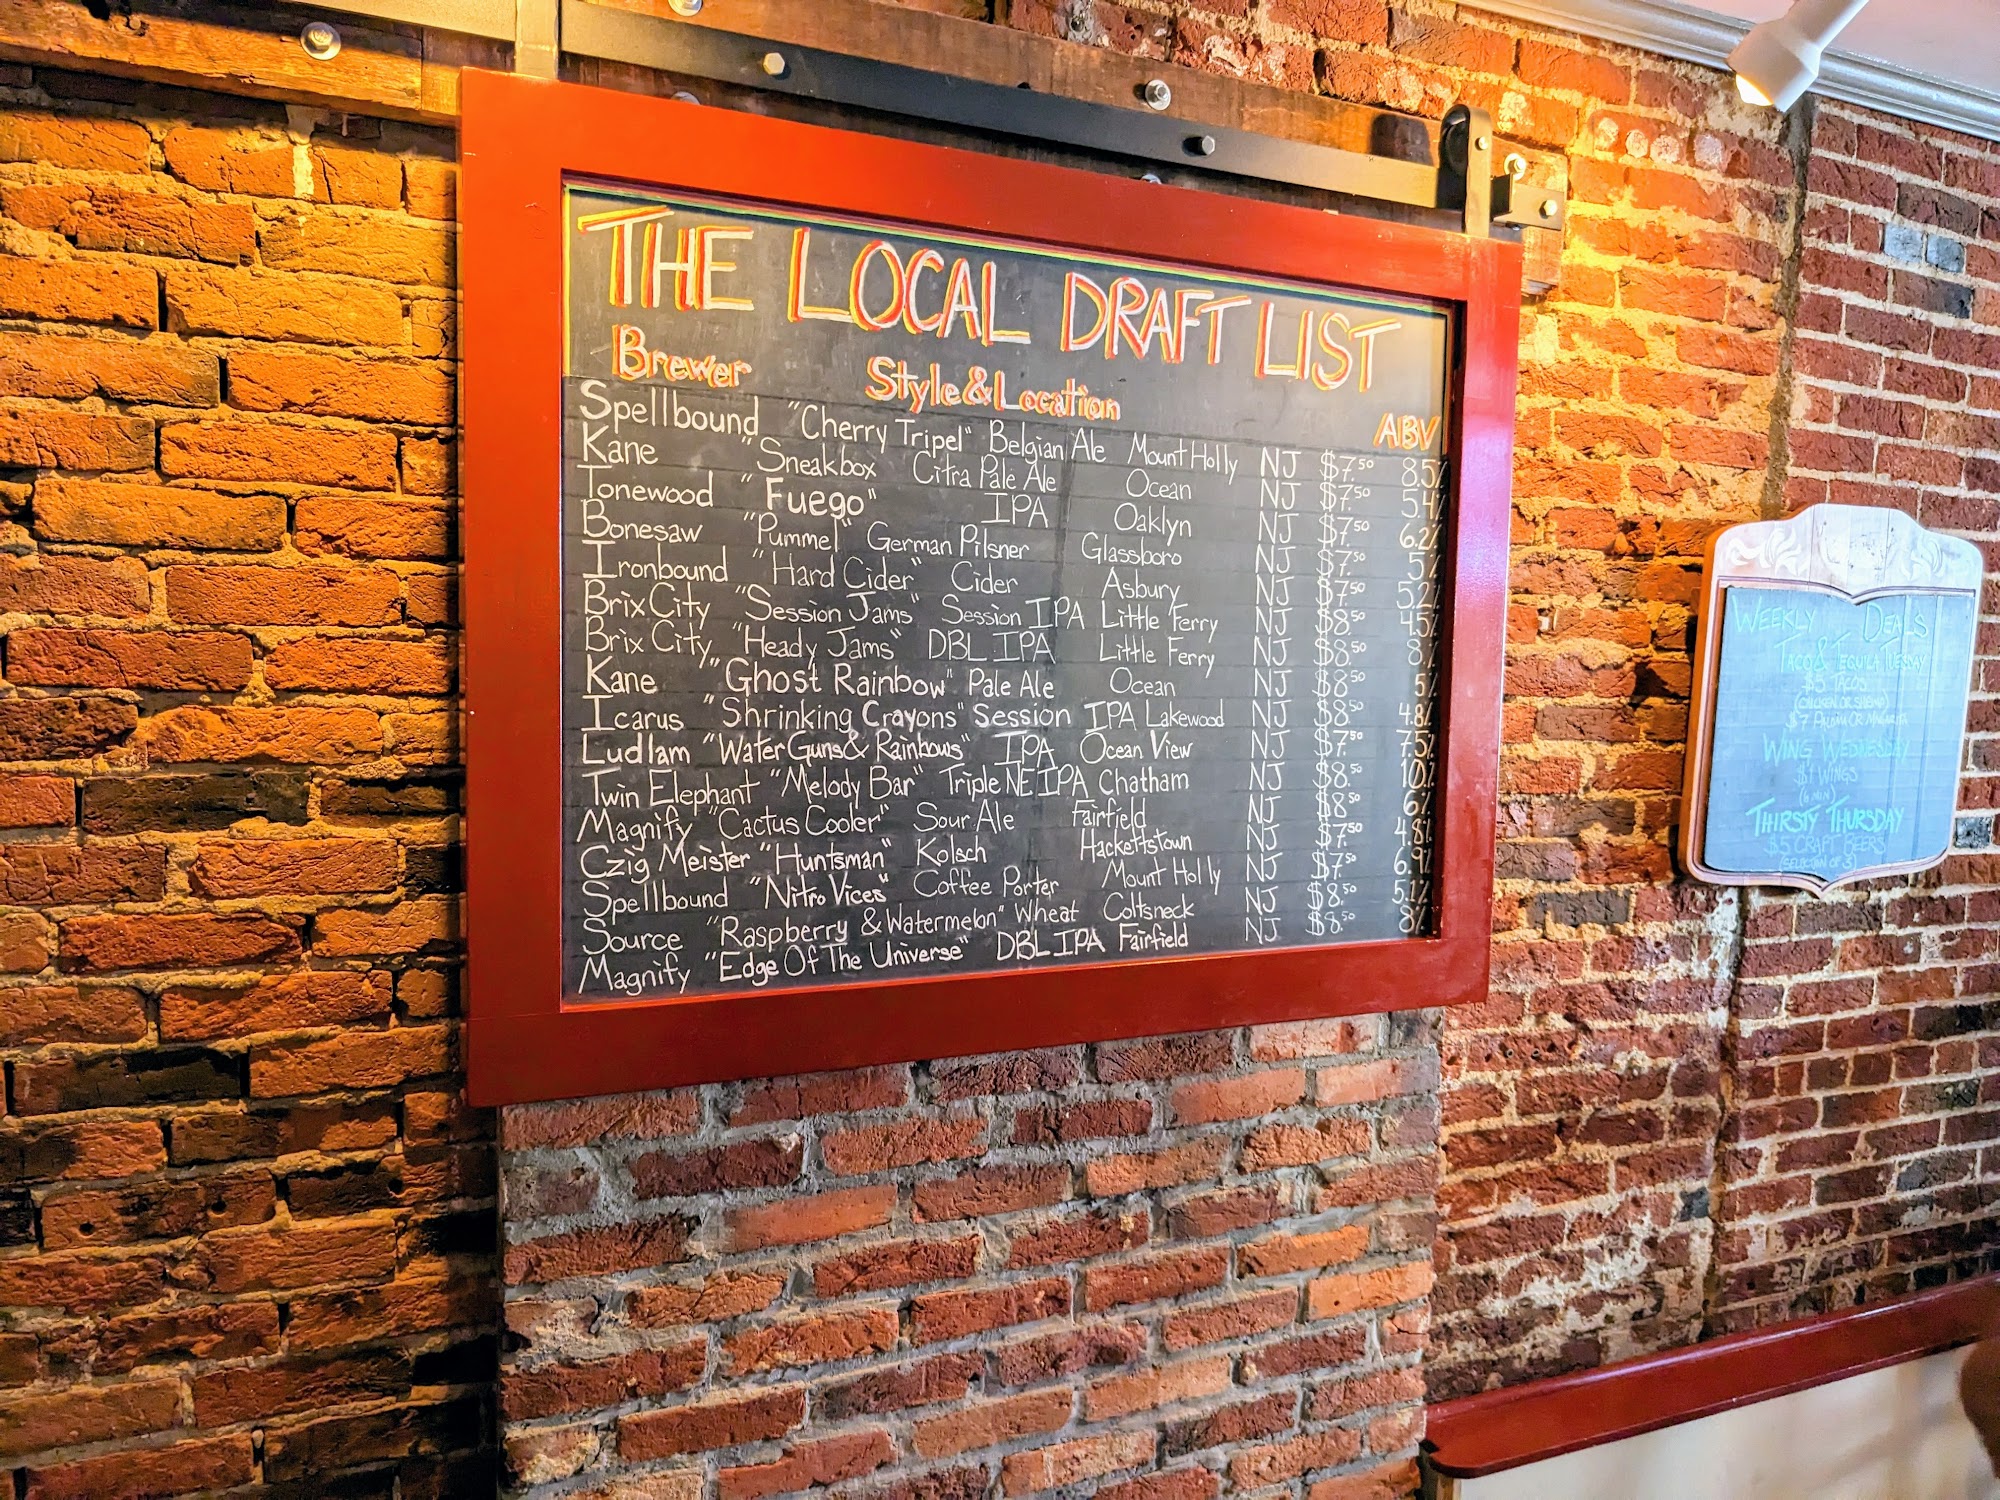 THE LOCAL DRAFT LIST
Brewer Style & Location ABV
Spellbound "Cherry Tripel" Belgian Ale Mount Holly NJ $7.50 8.5%
Kane "Sneakbox Citra Pale Ale Ocean NJ $7.50 5.4%
Tonewood "Fuego" IPA Oaklyn NJ $7.50 6.2%
Bonesaw "Pummel" German Pilsner Glassboro NJ $7.50 5%
Ironbound "Hard Cider" Cider Asbury NJ $7.50 5.2%
Brix City "Session Jams" Session IPA Little Ferry NJ $8.50 4.5%
Brix City "Heady Jams" DBL IPA Little Ferry NJ $8.50 8%
Kane "Ghost Rainbow" Pale Ale Ocean NJ $8.50 5%
Icarus "Shrinking Crayons" Session IPA Lakewood NJ $8.50 4.8%
Ludlam "Water Guns & Rainbows" IPA Ocean View NJ $7.50 7.5%
Twin Elephant "Melody Bar" Triple NE IPA Chatham NJ $8.50 10%
Magnify "Cactus Cooler" Sour Ale Fairfield NJ $8.50 6%
Czig Meister "Huntsman" Kolsch Hackettstown NJ $7.50 4.8%
Spellbound "Nitro Vices" Coffee Porter Mount Holly NJ $7.50 6.9%
Source "Raspberry & Watermelon" Wheat Coltsneck NJ $8.50 5.1%
Magnify "Edge Of The Universe" DBL IPA Fairfield NJ $8.50 8%
WEEKLY DEALS
TACO & TEQUILA TUESDAY
$5 TACOS
(CHICKEN OR
$7 PALOMA OR MARGARITA
WING WEDNESDAY
$1 WINGS
(6 MIN)
THIRSTY THURSDAY
$5 CRAFT BEERS
(SELECTION OF 3)